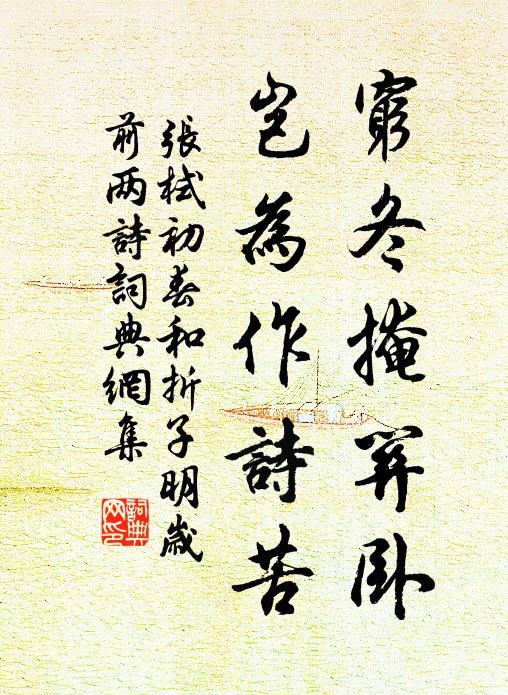 窮冬掩關卧
豈為作詩苦
張栻初春和折子明歲
前两詩詞典網集
詞典